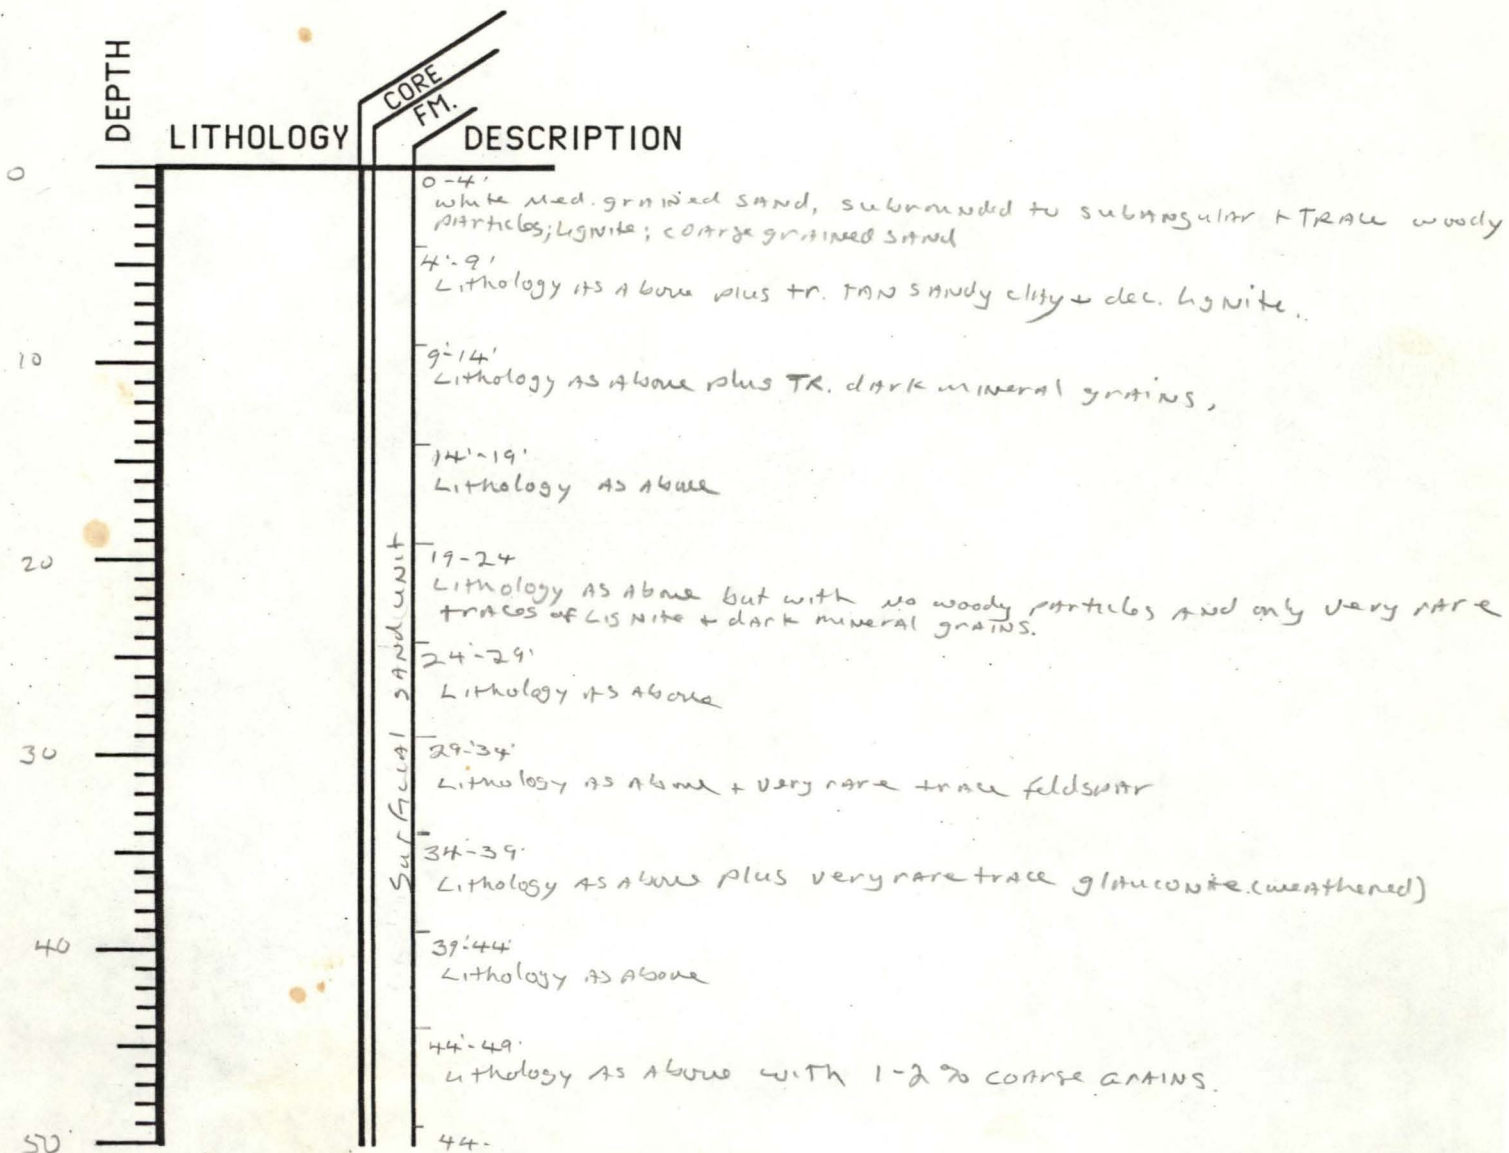 DEPTH
LITHOLOGY
CORE
FM.
DESCRIPTION
0
10
20
30
40
50
Surficial SAND UNIT
0-4'
white Med. grained SAND, subrounded to subangular + TRACE woody
particles; lignite; coarse grained sand
4'-9'
Lithology as Above plus tr. TAN SANDY clay + dec. lignite.
9'-14'
Lithology As Above plus TR. dark mineral grains,
14'-19'
Lithology As Above
19-24
Lithology As Above but with No woody particles And only very rare
traces of Lignite + dark mineral grains.
24'-29'
Lithology As Above
29-'34'
Lithology As Above + very rare trace feldspar
34'-39'
Lithology As Above plus very rare trace glauconite. (weathered)
39'-44'
Lithology As Above
44'-49'
Lithology As Above with 1-2 % coarse grains.
44-